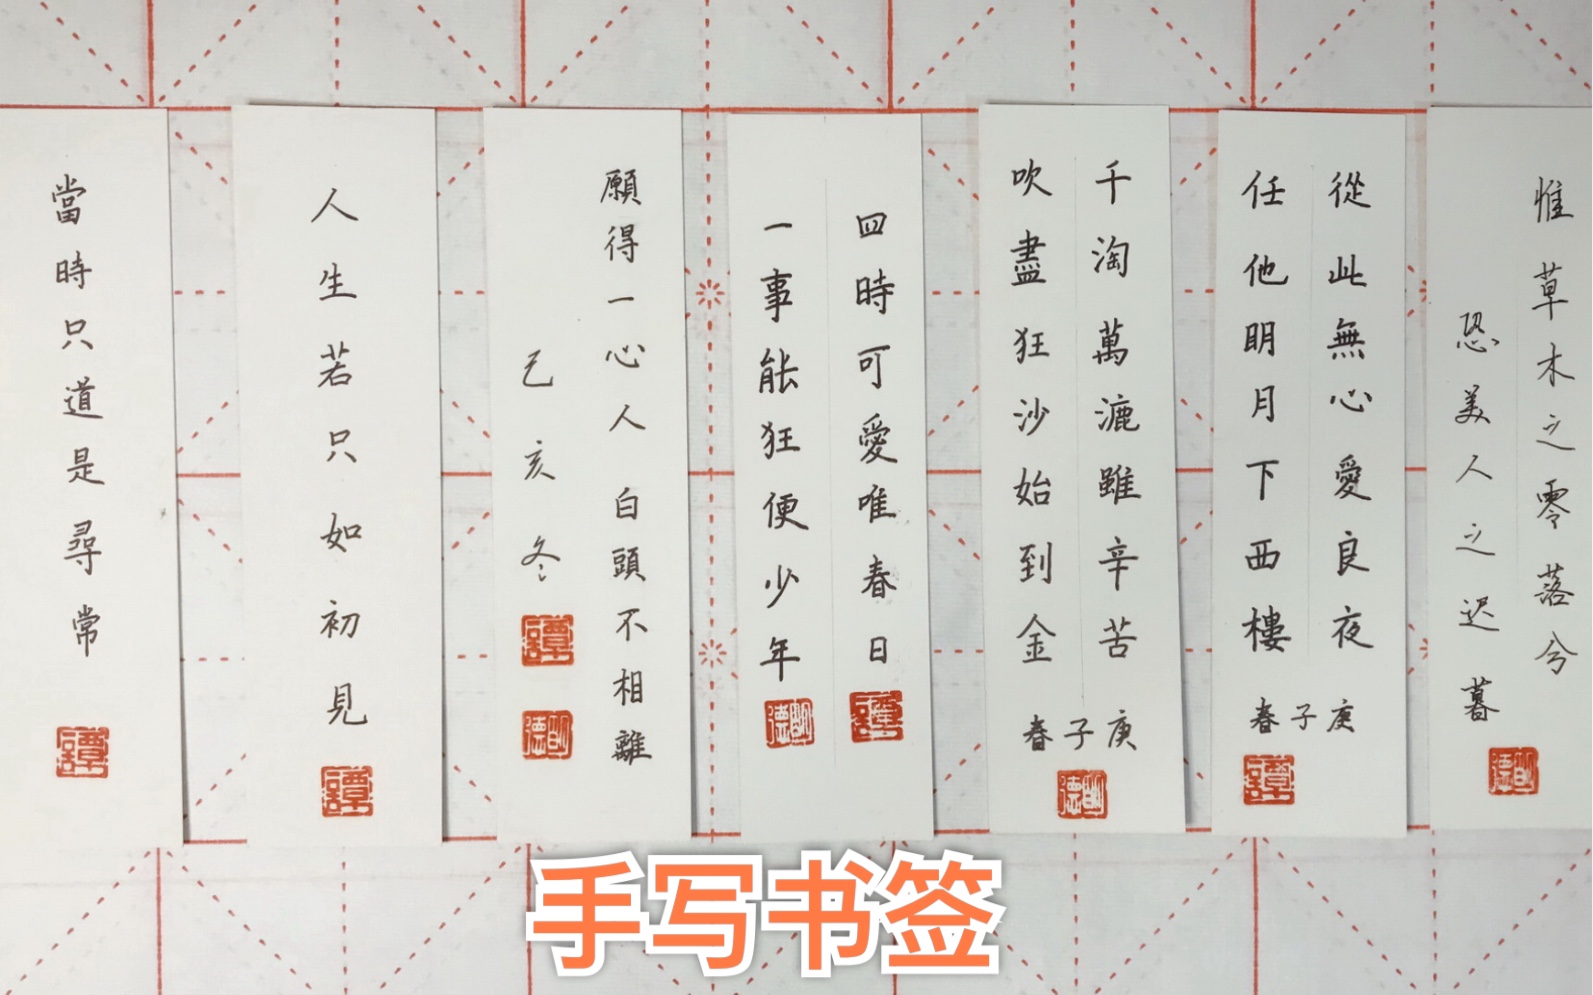 惟草木之零落兮
恐美人之迟暮
從此無心愛良夜
任他明月下西樓
庚子春
譚
千淘萬漉雖辛苦
吹盡狂沙始到金
庚子春
四時可愛唯春日
一事能狂便少年
譚
願得一心人白頭不相離
己亥冬
譚
人生若只如初見
譚
當時只道是尋常
譚
手写书签